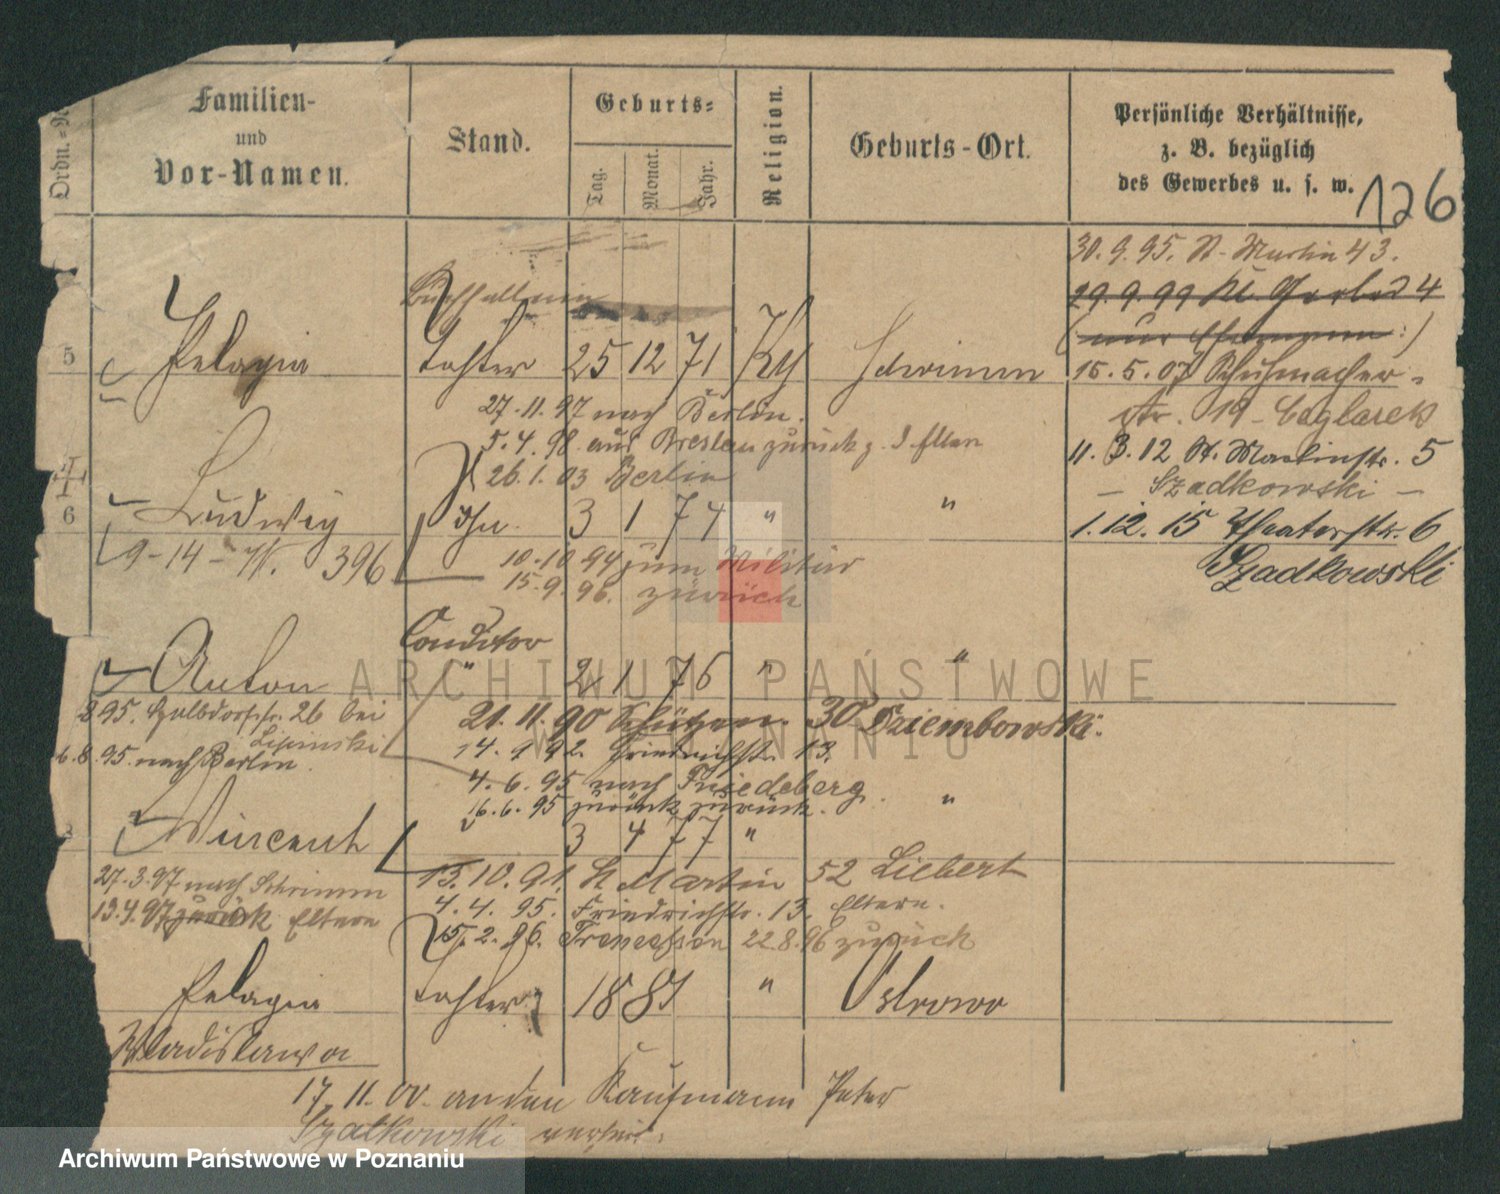 Ordn.-N
Familien-
und
Vor-Namen.
Stand.
Geburts-
Tag.
Monat.
Jahr.
Religion.
Geburts-Ort.
Persönliche Verhältnisse,
z. B. bezüglich
des Gewerbes u. s. w.
126
30.9.95. St. Martin 43.
29.9.99 Kl. 4
15.5.07 Schuhmacher-
str. 19 - Ceglarek
11.3.12 St. Martinstr. 5
- Szadkowski -
1.12.15 Theaterstr. 6
Szadkowski
Buchhalterin
5 Pelagia Tochter 25 12 71 Schrimm
27.11.97 nach Berlin.
5.4.98. aus Breslau zurück z. d. Eltern
26.1.03 Berlin
6 Ludwig Sohn 3 1 74 " "
9-14- 396
10.10.94 zum Militär
15.9.96. zurück
Conditor
Anton " 2 1 76 " "
8 95. Halbdorfstr. 26 bei
Lipinski
6.8.95. nach Berlin.
21.11.90 Schützen 30 Dziembowski.
14.9.92. Friedrichstr. 13.
4.6.95 nach Friedeberg
16.6.95 zurück zurück.
Vincent 3 4 77 " "
27.3.97 nach Schrimm
13.4.97 zurück Eltern
13.10.91. St Martin 52 Liebert
4.4.95. Friedrichstr. 13. Eltern.
15.2.96. Tremessen 22.8.96 zurück
Pelagia Tochter 1881 " Ostrowo
Wladislawa
17.11.00. an den Kaufmann Peter
Szatkowski verheir.
ARCHIWUM PAŃSTWOWE
W POZNANIU
Archiwum Państwowe w Poznaniu